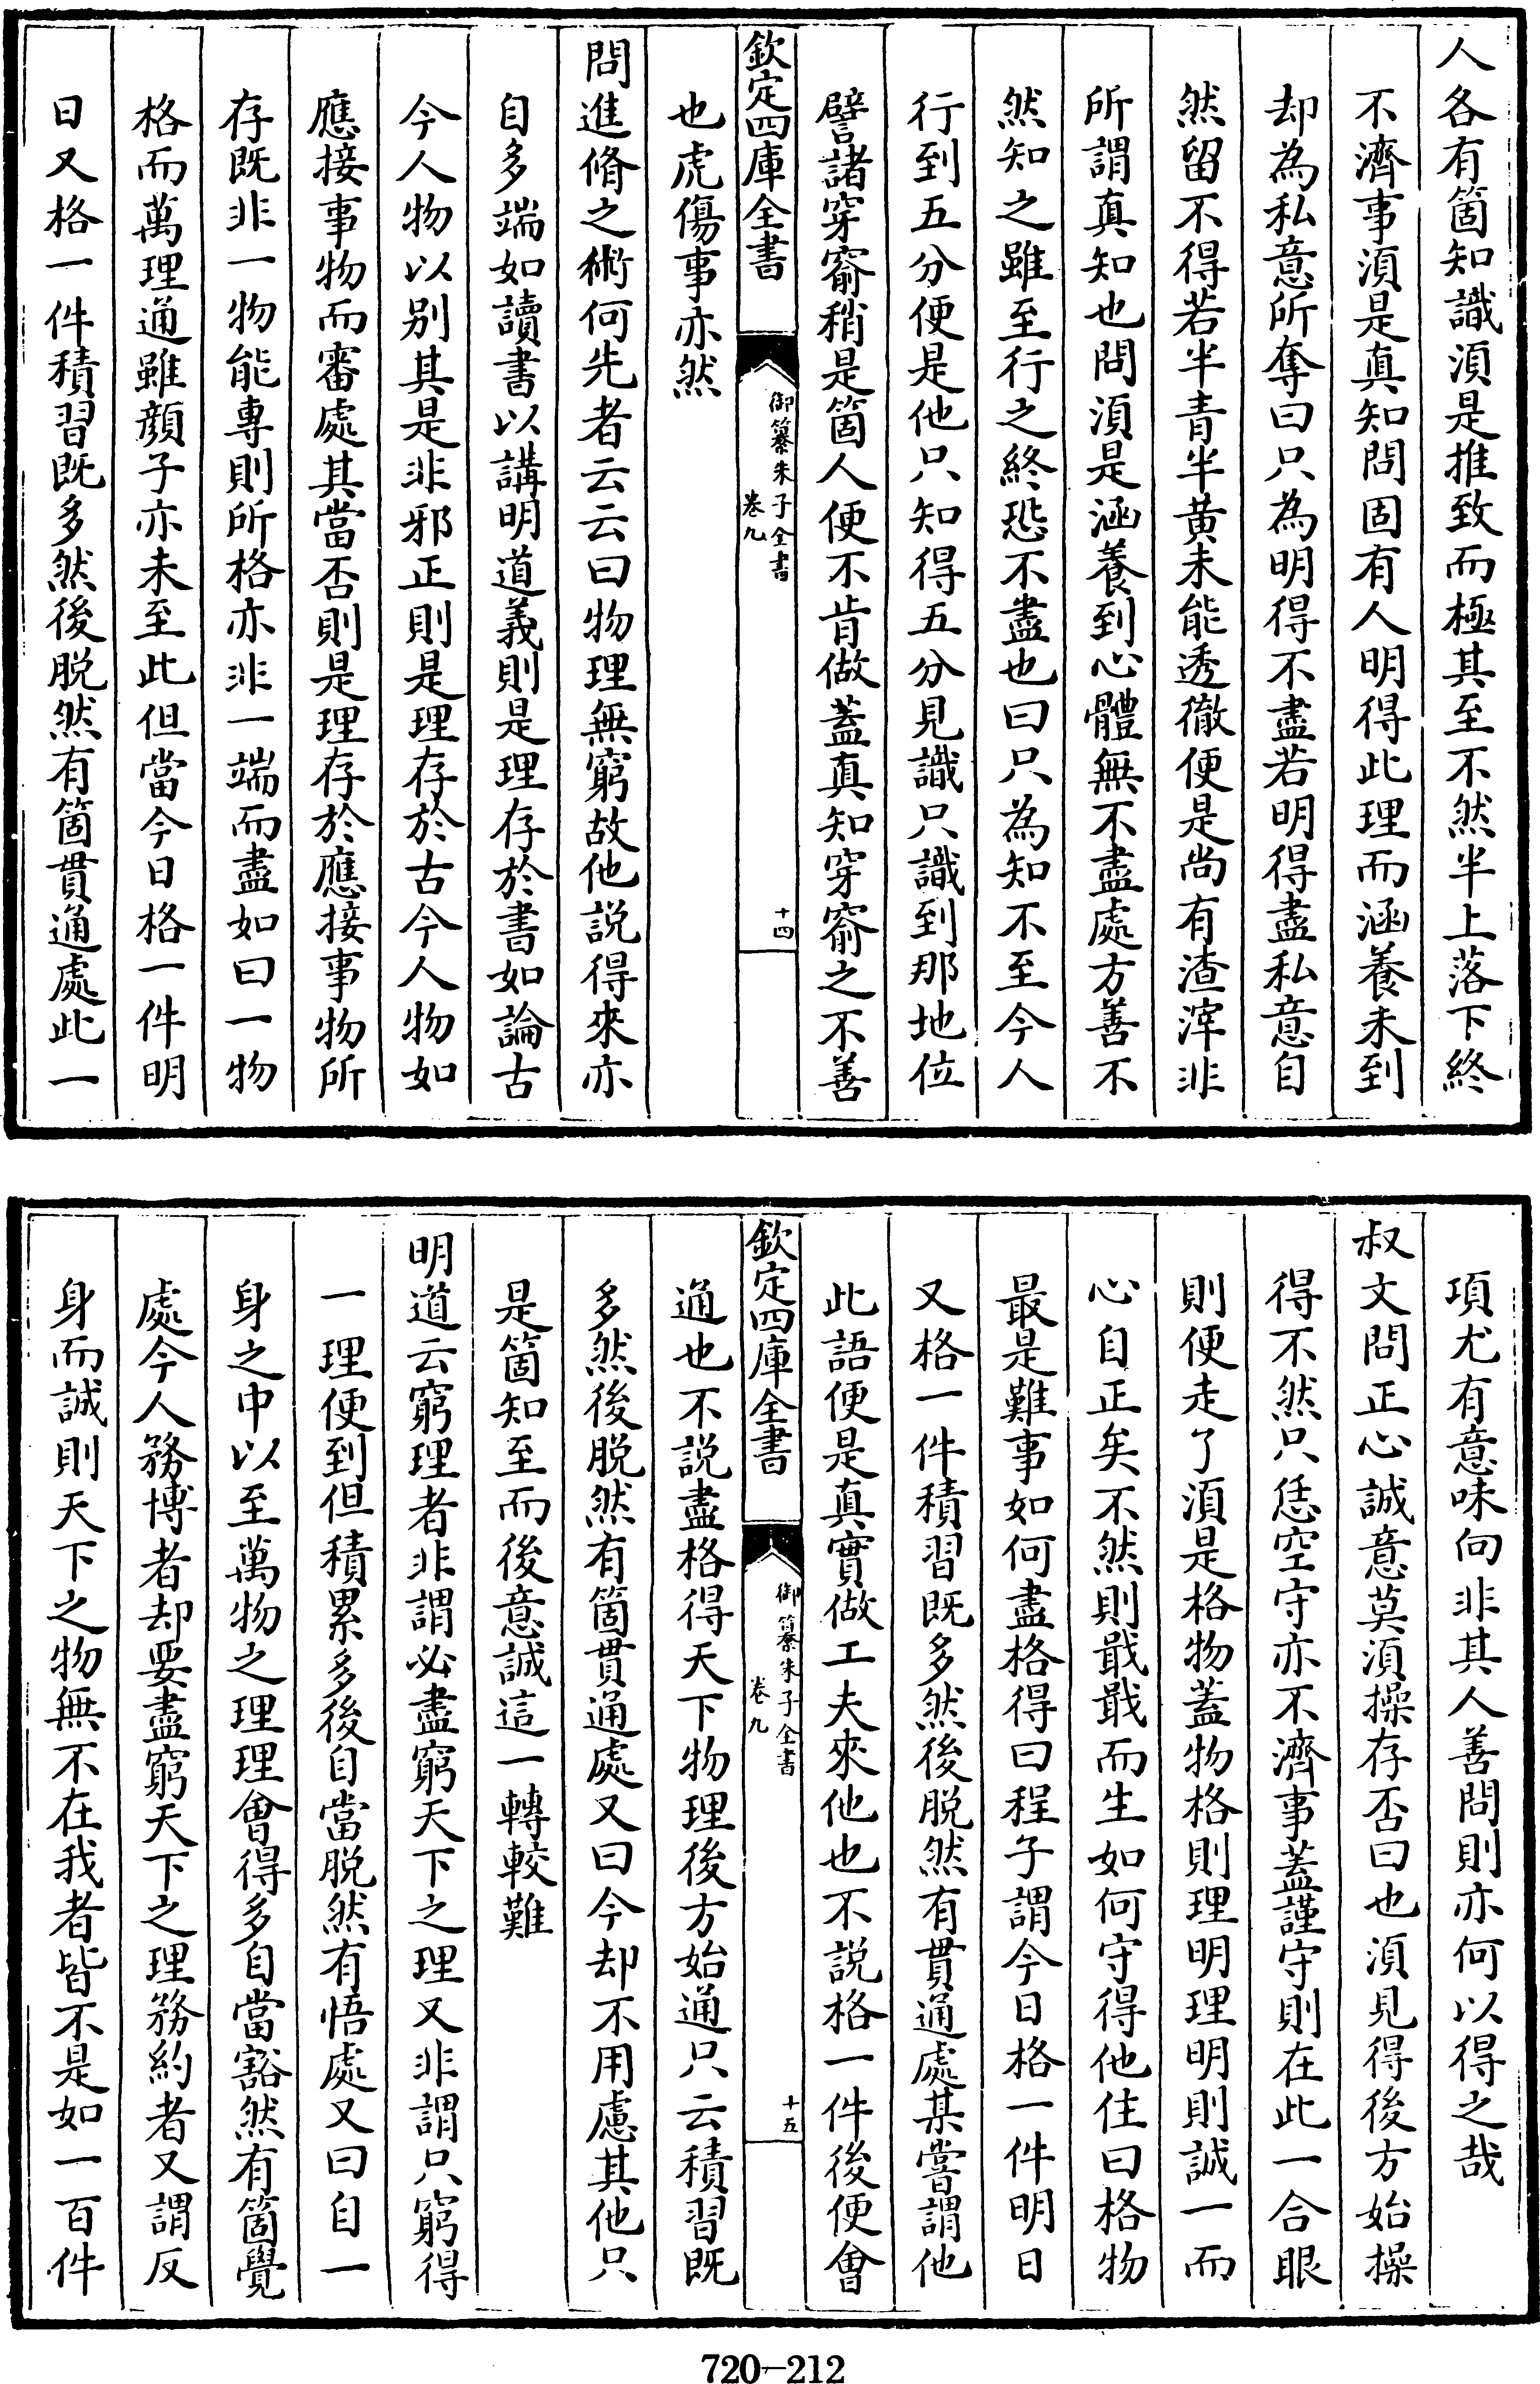 人各有箇知識須是推致而極其至不然半上落下終
不濟事須是真知問固有人明得此理而涵養未到
却為私意所奪曰只為明得不盡若明得盡私意自
然留不得若半青半黃未能透徹便是尚有渣滓非
所謂真知也問須是涵養到心體無不盡處方善不
然知之雖至行之終恐不盡也曰只為知不至今人
行到五分便是他只知得五分見識只識到那地位
譬諸穿窬稍是箇人便不肯做蓋真知穿窬之不善
欽定四庫全書
御纂朱子全書
卷九
十四
也虎傷事亦然
問進脩之術何先者云云曰物理無窮故他説得來亦
自多端如讀書以講明道義則是理存於書如論古
今人物以别其是非邪正則是理存於古今人物如
應接事物而審處其當否則是理存於應接事物所
存既非一物能專則所格亦非一端而盡如曰一物
格而萬理通雖顔子亦未至此但當今日格一件明
日又格一件積習既多然後脱然有箇貫通處此一
項尤有意味向非其人善問則亦何以得之哉
叔文問正心誠意莫須操存否曰也須見得後方始操
得不然只恁空守亦不濟事蓋謹守則在此一合眼
則便走了須是格物蓋物格則理明理明則誠一而
心自正矣不然則戢戢而生如何守得他住曰格物
最是難事如何盡格得曰程子謂今日格一件明日
又格一件積習既多然後脱然有貫通處某嘗謂他
此語便是真實做工夫來他也不説格一件後便會
欽定四庫全書
御纂朱子全書
卷九
十五
通也不説盡格得天下物理後方始通只云積習既
多然後脱然有箇貫通處又曰今却不用慮其他只
是箇知至而後意誠這一轉較難
明道云窮理者非謂必盡窮天下之理又非謂只窮得
一理便到但積累多後自當脱然有悟處又曰自一
身之中以至萬物之理理會得多自當豁然有箇覺
處今人務博者却要盡窮天下之理務約者又謂反
身而誠則天下之物無不在我者皆不是如一百件
720-212